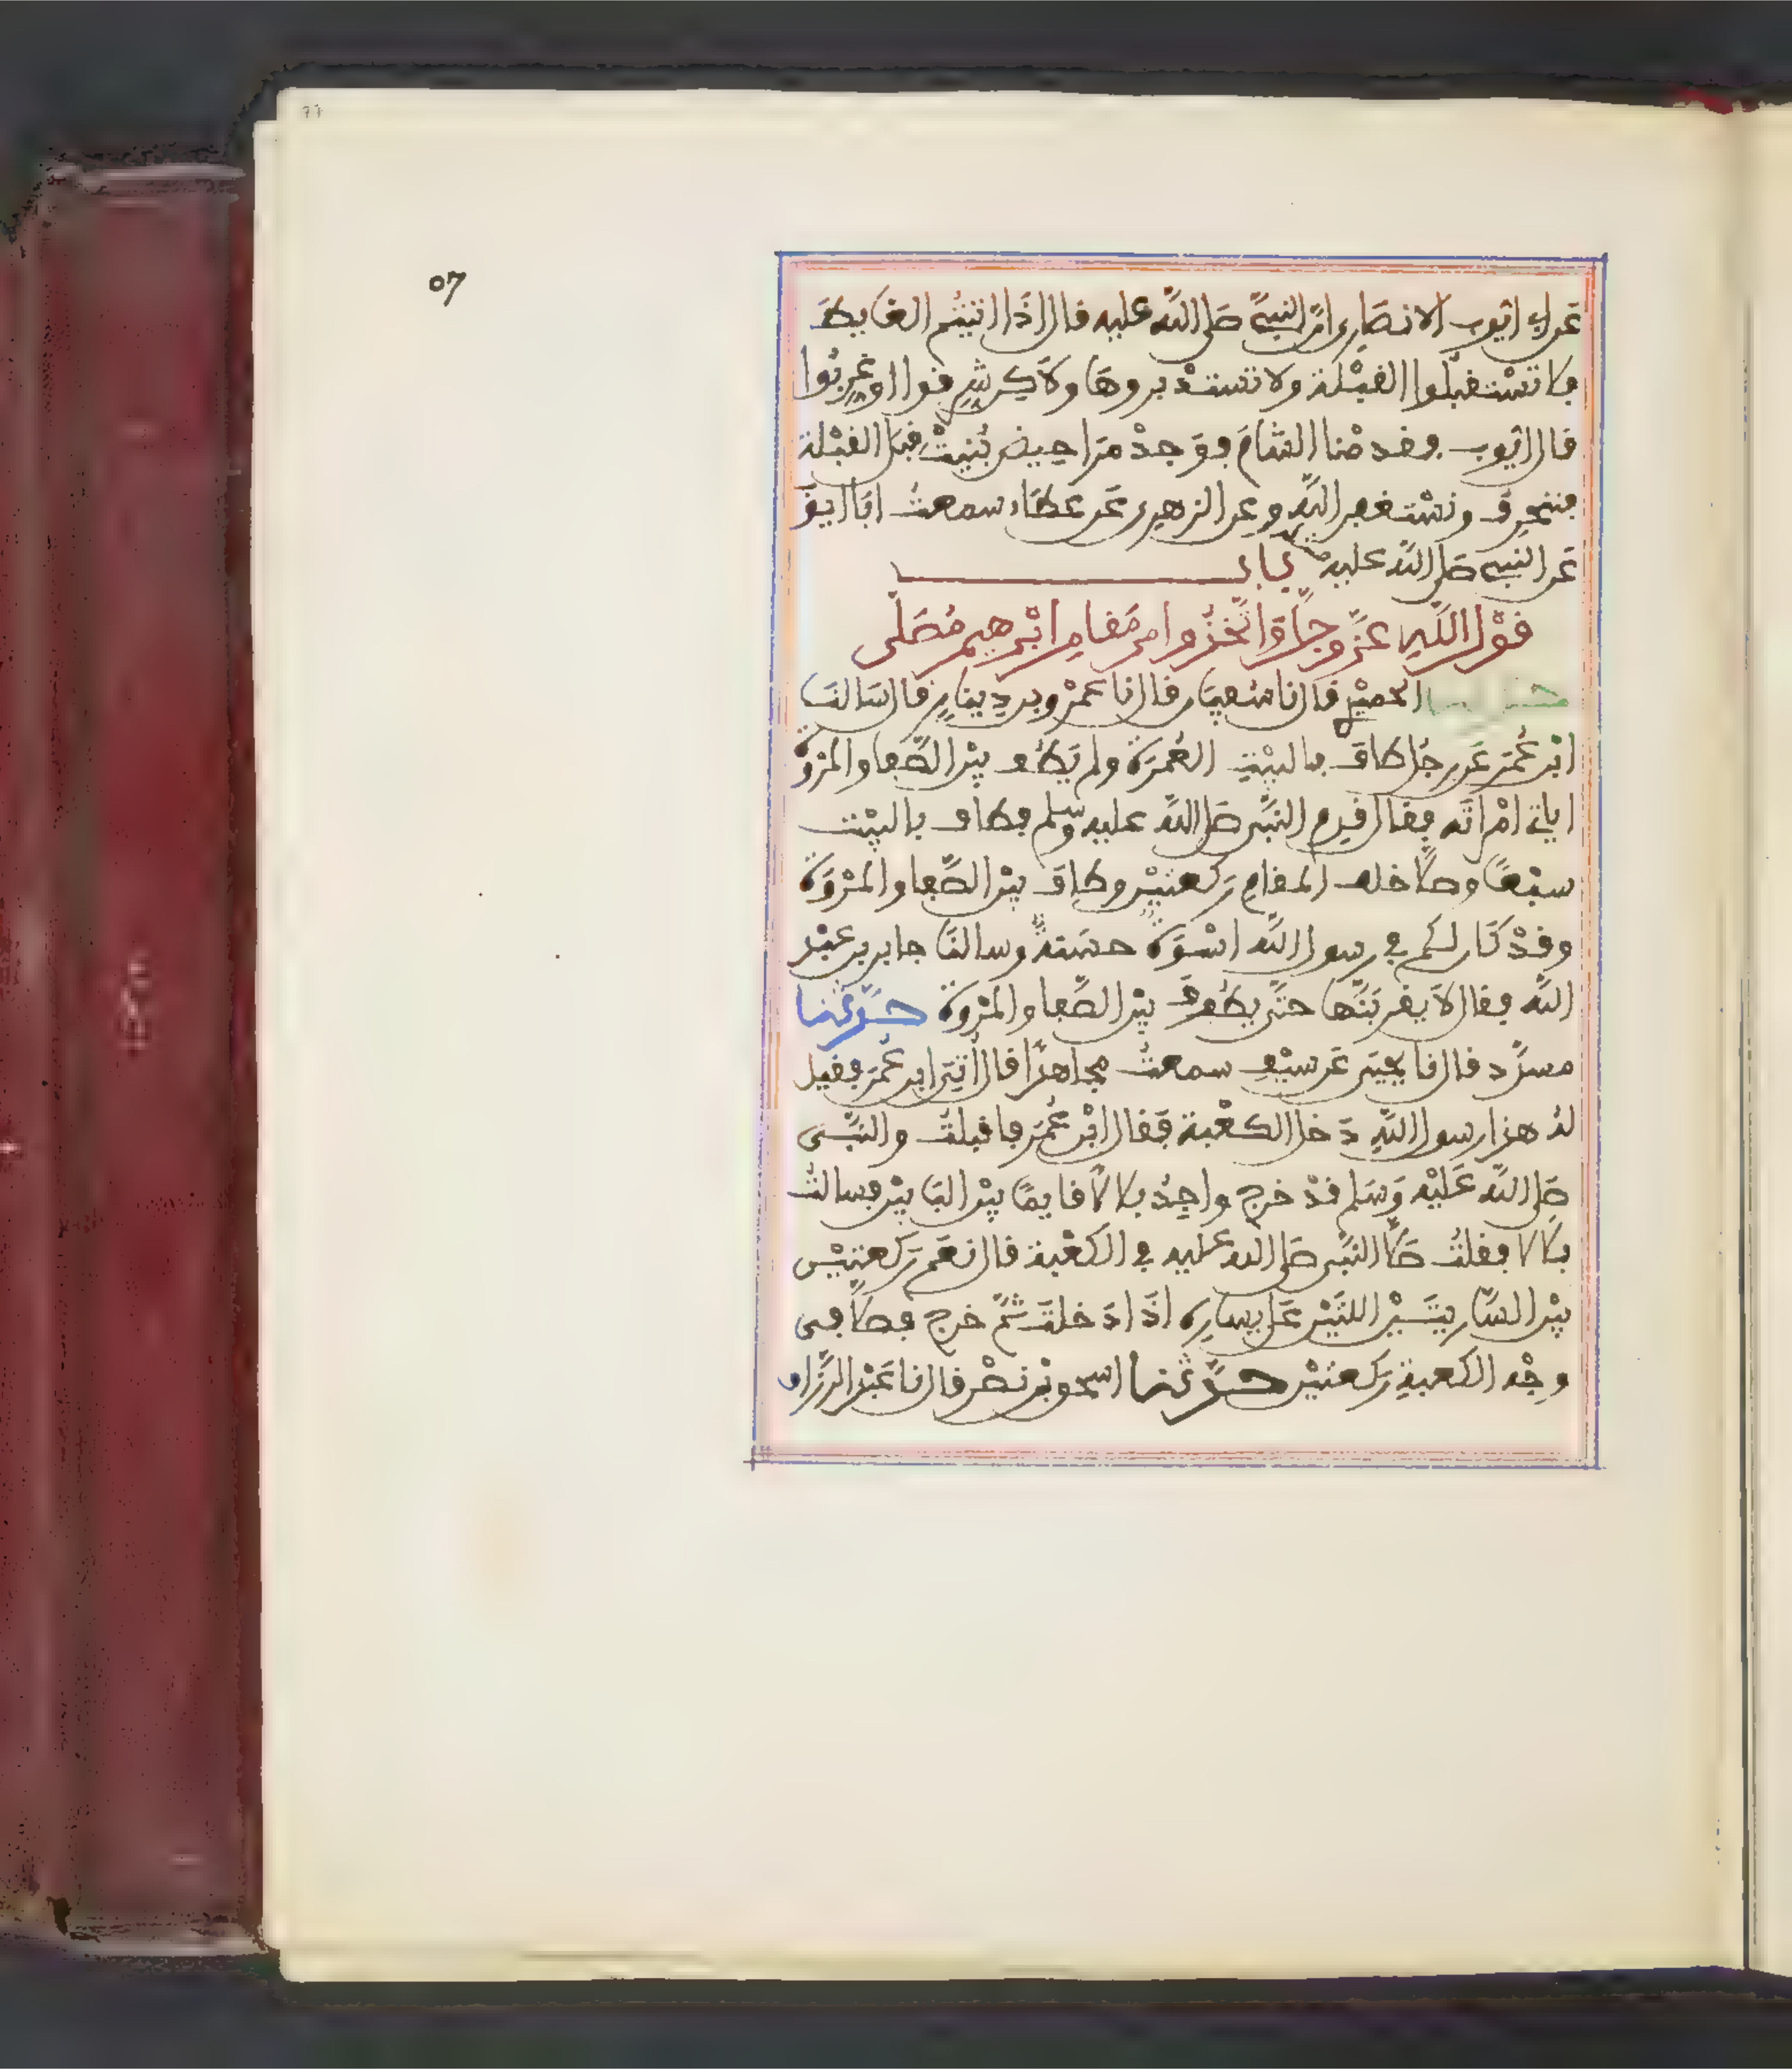 عن ابي ايوب الانصاري ان النبي صلى الله عليه قال اذا اتيتم الغايط
فلا تستقبلوا القبلة ولا تستدبروها ولاكن شرقوا او غربوا
قال ايوب فقدمنا الشام فوجدنا مراحيض بنيت قبل القبلة
فننحرف ونستغفر الله وعن الزهري عن عطاء سمعت ابا ايو
عن النبي صلى الله عليه باب
قول الله عز وجل واتخذوا من مقام ابرهيم مصلى
حدثنا الحميدي قال نا سفين قال نا عمرو بن دينار قال سالنا
ابن عمر عن رجل طاف بالبيت العمرة ولم يطف بين الصفا والمروة
اياتي امراته فقال قدم النبي صلى الله عليه وسلم فطاف بالبيت
سبعا وصلى خلف المقام ركعتين وطاف بين الصفا والمروة
وقد كان لكم في رسول الله اسوة حسنة وسالنا جابر بن عبد
الله فقال لا يقربنها حتى يطوف بين الصفا والمروة حدثنا
مسدد قال نا يحيى عن سيف سمعت مجاهدا قال اتي ابن عمر فقيل
له هذا رسول الله دخل الكعبة فقال ابن عمر فاقبلت والنبي
صلى الله عليه وسلم قد خرج واجد بلالا قايما بين البابين فسالت
بلالا فقلت صلى النبي صلى الله عليه في الكعبة قال نعم ركعتين
بين الساريتين اللتين على يساره اذا دخلت ثم خرج فصلى في
وجه الكعبة ركعتين حدثنا اسحق بن نصر قال نا عبد الرزاق